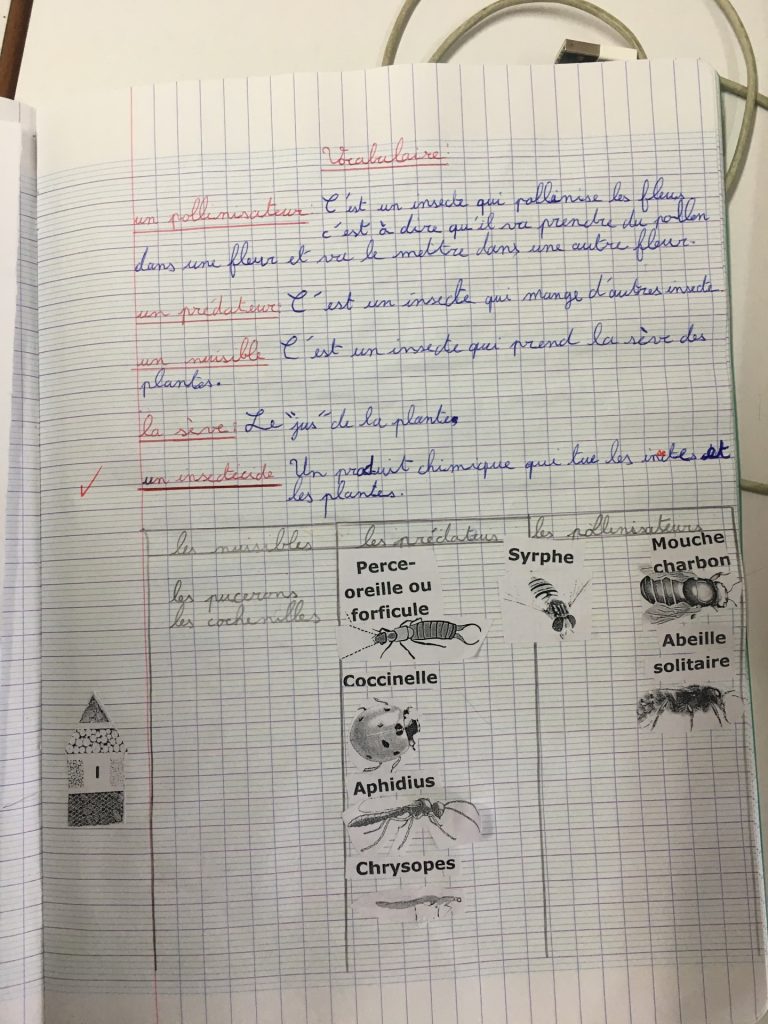 Vocabulaire:
un pollinisateur: C'est un insecte qui pollinise les fleurs
c'est à dire qu'il va prendre du pollen
dans une fleur et va le mettre dans une autre fleur.
un prédateur: C'est un insecte qui mange d'autres insecte.
un nuisible C'est un insecte qui prend la sève des
plantes.
la sève: Le "jus" de la plante.
un insecticide Un produit chimique qui tue les et
les plantes.
les nuisibles les prédateurs les pollinisateurs
les pucerons
les cochenilles
Perce-
oreille ou
forficule
Coccinelle
Aphidius
Chrysopes
Syrphe
Mouche
charbon
Abeille
solitaire